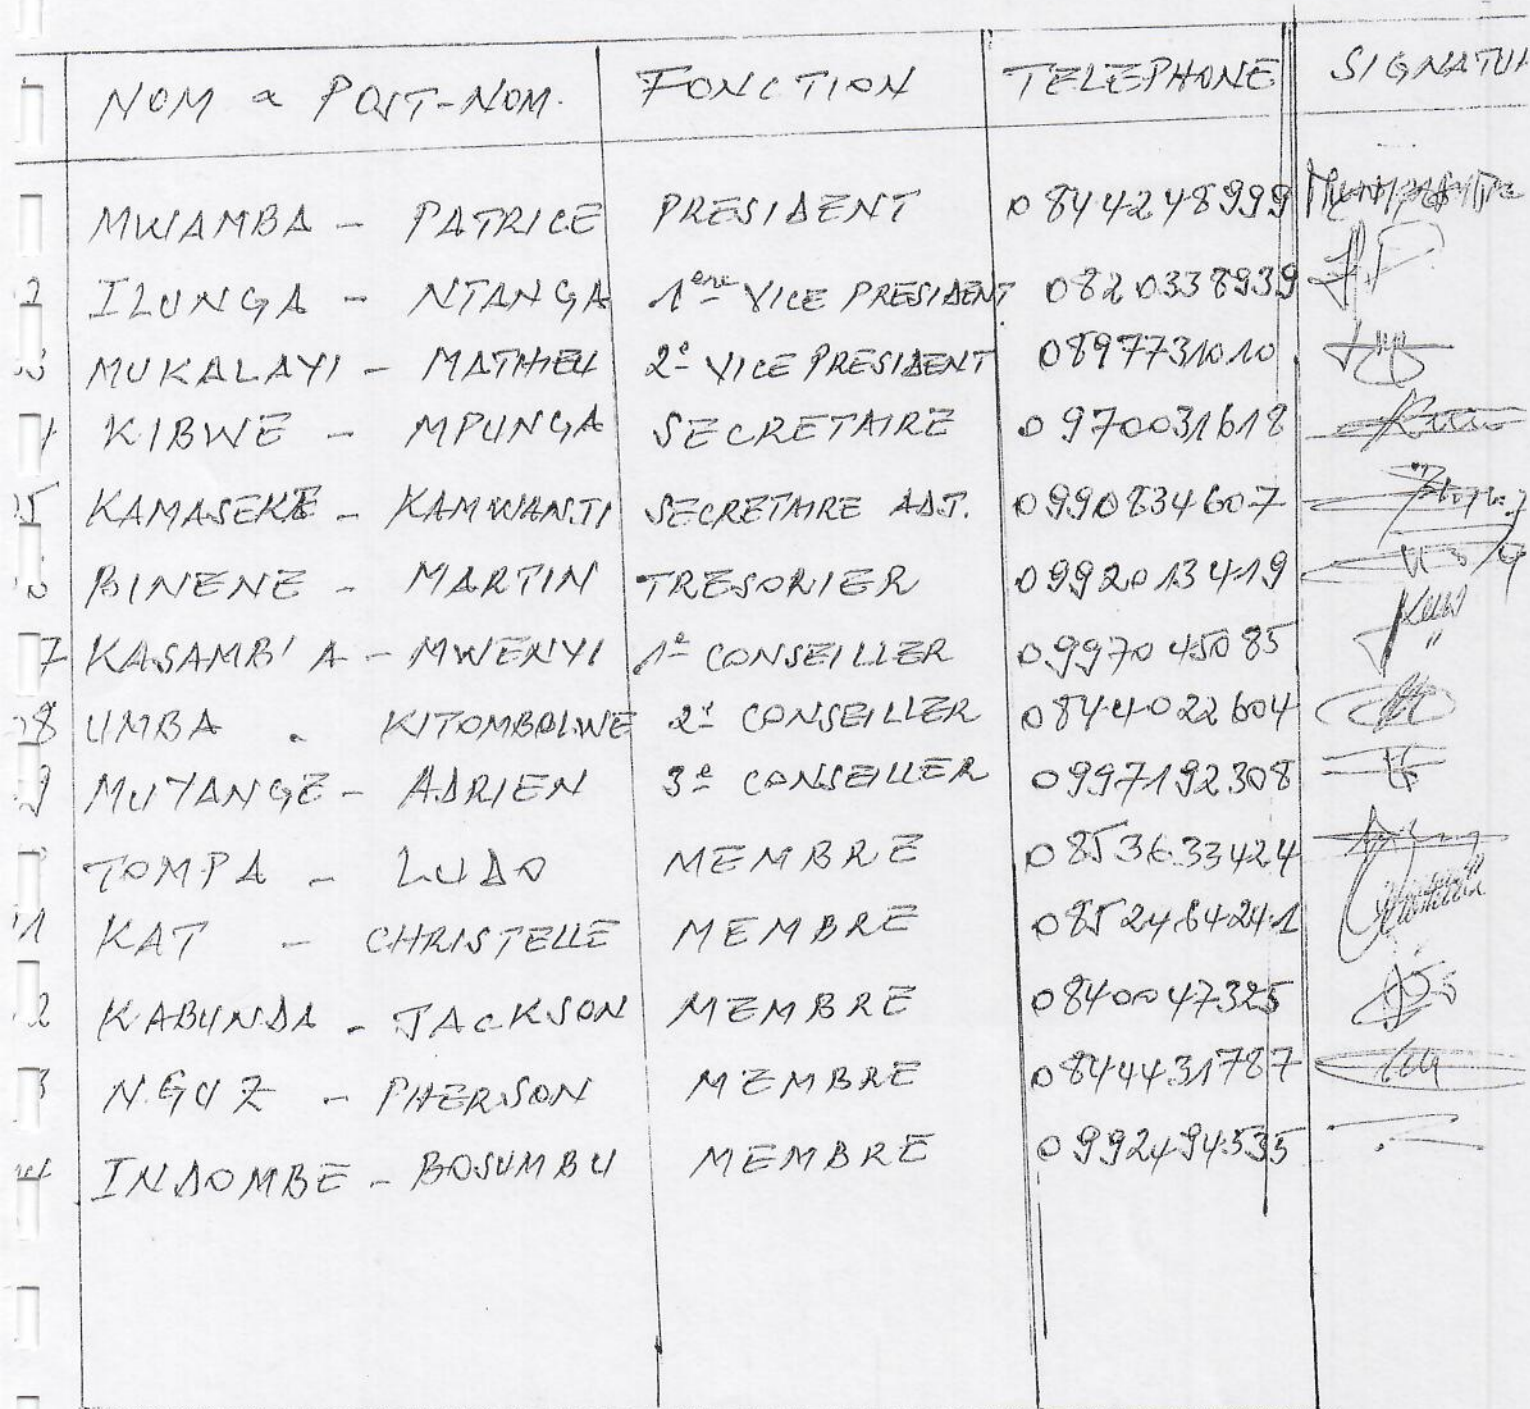 NOM & POST-NOM. FONCTION TELEPHONE SIGNATU
MWAMBA - PATRICE PRESIDENT 0844248999
2 ILUNGA - NTANGA 1ere VICE PRESIDENT 0820338939
3 MUKALAYI - MATHIEU 2e VICE PRESIDENT 0897731010
4 KIBWE - MPUNGA SECRETAIRE 0970031618
05 KAMASEKE - KAMWANJI SECRETAIRE ADJ. 0990834607
6 BINENE - MARTIN TRESORIER 0992013419
7 KASAMB'A - MWENYI 1e CONSEILLER 0997045085
08 UMBA - KITOMBOLWE 2e CONSEILLER 0844022604
9 MUYANGE - ADRIEN 3e CONSEILLER 0997192308
TOMPA - LUDO MEMBRE 0853633424
11 KAT - CHRISTELLE MEMBRE 0852464241
2 KABUNDA - JACKSON MEMBRE 0840047325
3 NGUZ - PHERSON MEMBRE 0844431787
14 INDOMBE - BOSUMBU MEMBRE 0992494535